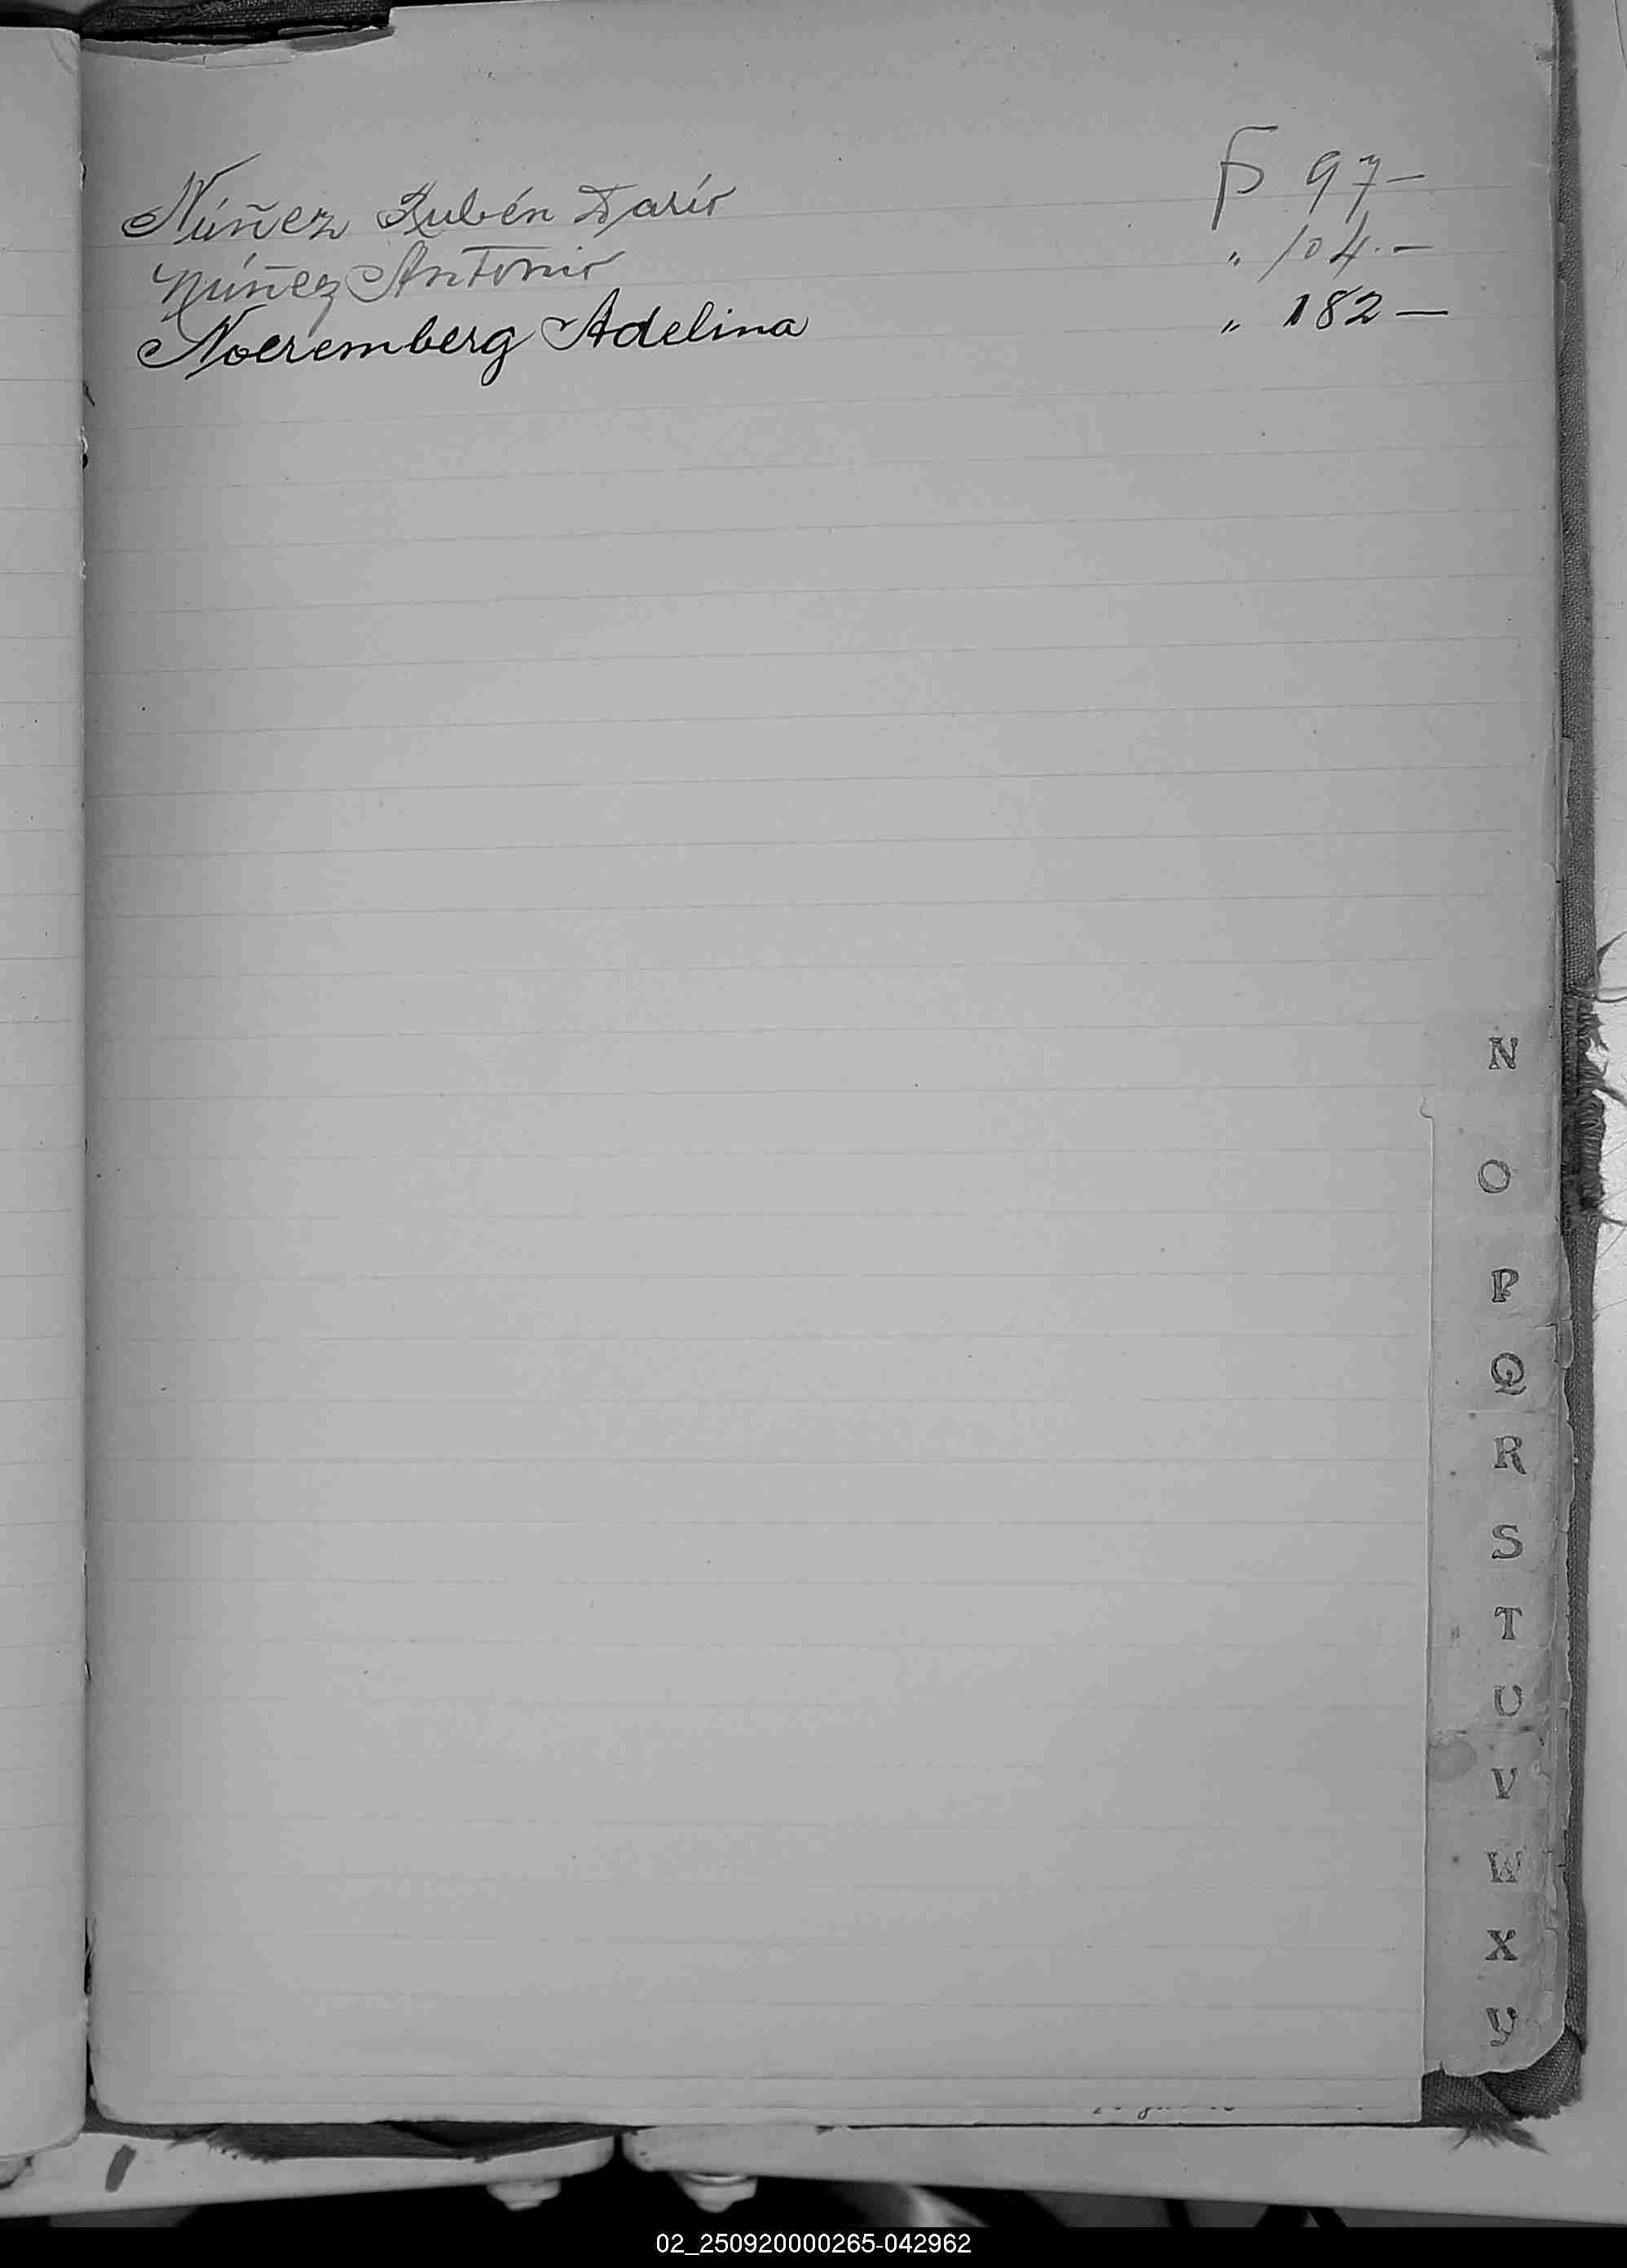 Núñez Rubén Darío F 97-
Núñez Antonio " 104.-
Noeremberg Adelina " 182-
N
O
P
Q
R
S
T
U
V
W
X
Y
02_250920000265-042962